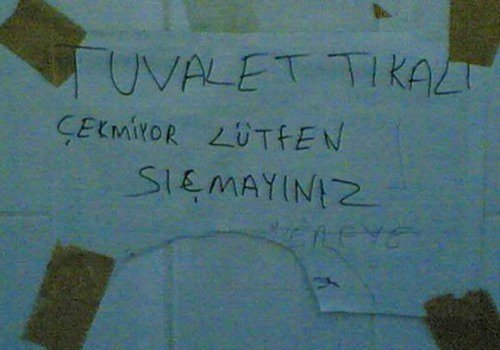 TUVALET TIKALI
ÇEKMİYOR LÜTFEN
SIÇMAYINIZ